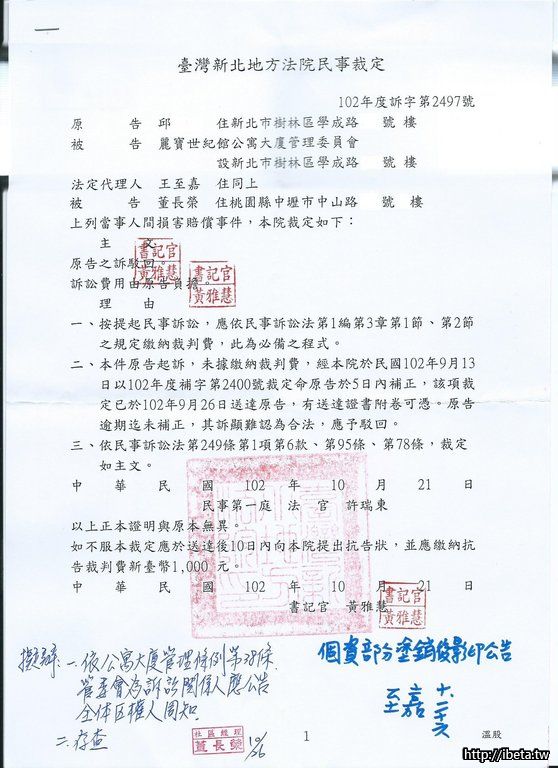 臺灣新北地方法院民事裁定
102年度訴字第2497號
原告 邱 住新北市樹林區學成路 號 樓
被告 麗寶世紀館公寓大廈管理委員會
設新北市樹林區學成路 號 樓
法定代理人 王至嘉 住同上
被告 董長榮 住桃園縣中壢市中山路 號 樓
上列當事人間損害賠償事件,本院裁定如下:
主文
書記官
黃雅慧
原告之訴駁回。
書記官
黃雅慧
訴訟費用由原告負擔。
理由
一、按提起民事訴訟,應依民事訴訟法第1編第3章第1節、第2節
之規定繳納裁判費,此為必備之程式。
二、本件原告起訴,未據繳納裁判費,經本院於民國102年9月13
日以102年度補字第2400號裁定命原告於5日內補正,該項裁
定已於102年9月26日送達原告,有送達證書附卷可憑。原告
逾期迄未補正,其訴顯難認為合法,應予駁回。
三、依民事訴訟法第249條第1項第6款、第95條、第78條,裁定
如主文。
中華民國 102 年 10 月 21 日
民事第一庭 法官 許瑞東
以上正本證明與原本無異。
如不服本裁定應於送達後10日內向本院提出抗告狀,並應繳納抗
告裁判費新臺幣1,000元。
中華民國 102 年 10 月 21 日
書記官 黃雅慧
書記官
黃雅慧
擬辦:一.依公寓大廈管理條例第38條,
管委會為訴訟關係人應公告
全体区權人周知.
二.存查
社區經理
董長榮
10/26
個資部分塗銷後影印公告
至嘉 十.二六
1
溫股
http://ibeta.tw